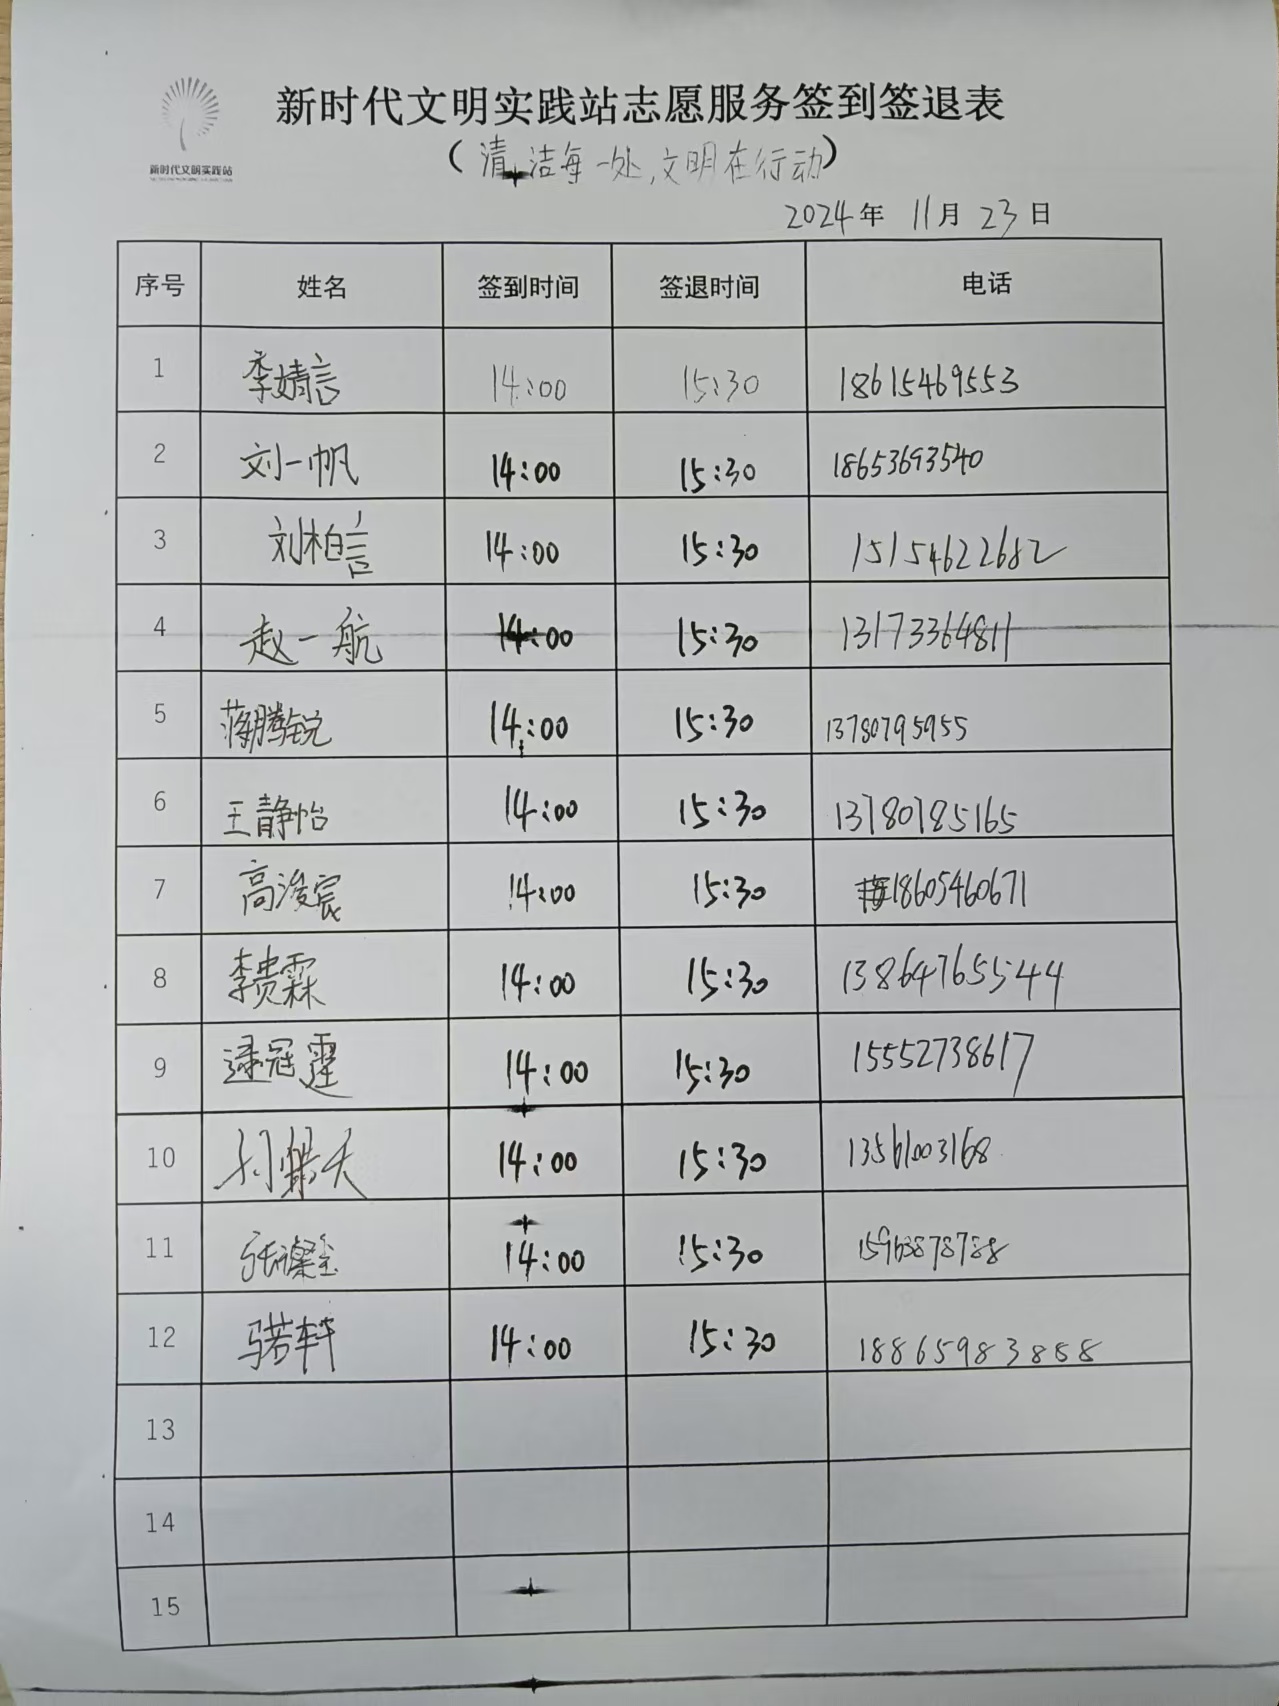 新时代文明实践站志愿服务签到签退表
新时代文明实践站
（清洁每一处,文明在行动）
2024年 11月 23日
序号 姓名 签到时间 签退时间 电话
1 李婧言 14:00 15:30 18615469553
2 刘一帆 14:00 15:30 18653693540
3 刘柏言 14:00 15:30 15154622682
4 赵一航 14:00 15:30 13173364811
5 蒋腾锐 14:00 15:30 13780795955
6 王静怡 14:00 15:30 13780785165
7 高浚宸 14:00 15:30 18605460671
8 李贵霖 14:00 15:30 13864765544
9 逯冠霆 14:00 15:30 15552738617
10 14:00 15:30 13561003168
11 张 14:00 15:30 15963878788
12 马若轩 14:00 15:30 18865983888
13
14
15